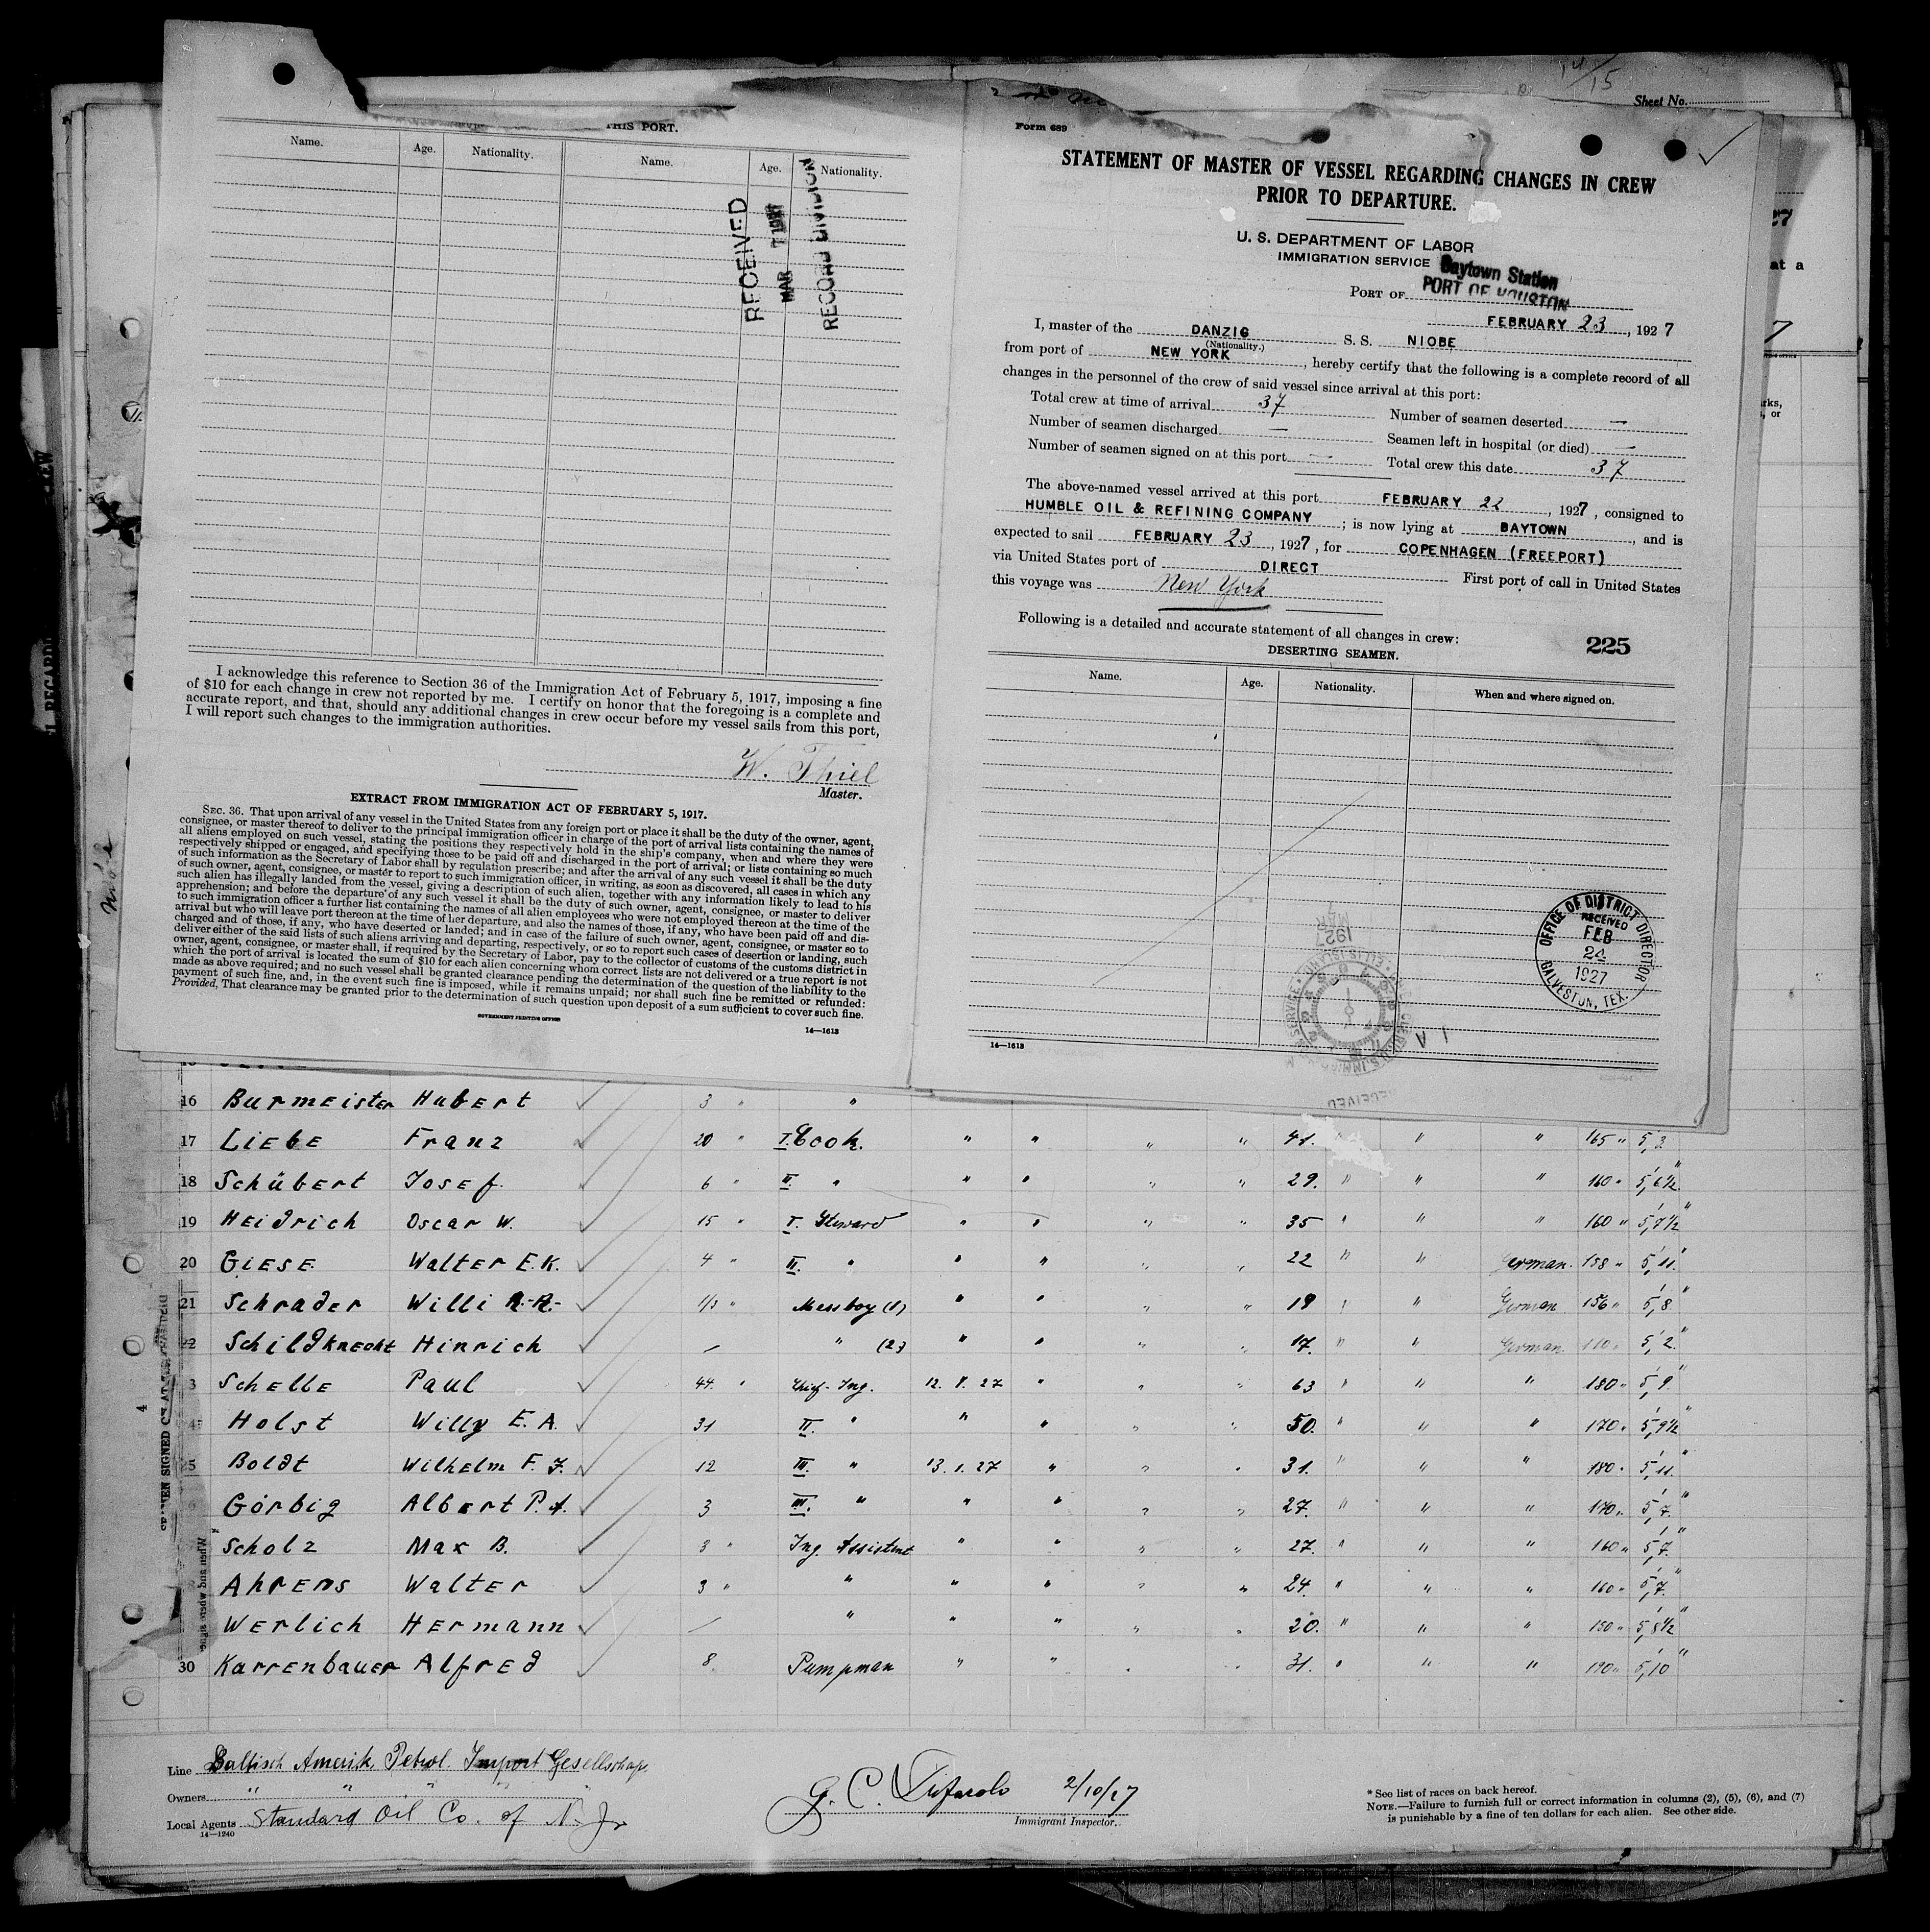 THIS PORT.
Name. Age. Nationality. Name. Age. Nationality.
RECEIVED
MAR 7 1927
RECORD DIVISION
I acknowledge this reference to Section 36 of the Immigration Act of February 5, 1917, imposing a fine
of $10 for each change in crew not reported by me. I certify on honor that the foregoing is a complete and
accurate report, and that, should any additional changes in crew occur before my vessel sails from this port,
I will report such changes to the immigration authorities.
W. Thiel
Master.
EXTRACT FROM IMMIGRATION ACT OF FEBRUARY 5, 1917.
SEC. 36. That upon arrival of any vessel in the United States from any foreign port or place it shall be the duty of the owner, agent,
consignee, or master thereof to deliver to the principal immigration officer in charge of the port of arrival lists containing the names of
all aliens employed on such vessel, stating the positions they respectively hold in the ship's company, when and where they were
respectively shipped or engaged, and specifying those to be paid off and discharged in the port of arrival; or lists containing so much
of such information as the Secretary of Labor shall by regulation prescribe; and after the arrival of any such vessel it shall be the duty
of such owner, agent, consignee, or master to report to such immigration officer, in writing, as soon as discovered, all cases in which any
such alien has illegally landed from the vessel, giving a description of such alien, together with any information likely to lead to his
apprehension; and before the departure of any such vessel it shall be the duty of such owner, agent, consignee, or master to deliver
to such immigration officer a further list containing the names of all alien employees who were not employed thereon at the time of the
arrival but who will leave port thereon at the time of her departure, and also the names of those, if any, who have been paid off and dis-
charged and of those, if any, who have deserted or landed; and in case of the failure of such owner, agent, consignee, or master so to
deliver either of the said lists of such aliens arriving and departing, respectively, or so to report such cases of desertion or landing, such
owner, agent, consignee, or master shall, if required by the Secretary of Labor, pay to the collector of customs of the customs district in
which the port of arrival is located the sum of $10 for each alien concerning whom correct lists are not delivered or a true report is not
made as above required; and no such vessel shall be granted clearance pending the determination of the question of the liability to the
payment of such fine, and, in the event such fine is imposed, while it remains unpaid; nor shall such fine be remitted or refunded:
Provided, That clearance may be granted prior to the determination of such question upon deposit of a sum sufficient to cover such fine.
GOVERNMENT PRINTING OFFICE
14—1613
Sheet No.
Form 689
STATEMENT OF MASTER OF VESSEL REGARDING CHANGES IN CREW
PRIOR TO DEPARTURE.
U. S. DEPARTMENT OF LABOR
IMMIGRATION SERVICE
Baytown Station
PORT OF PORT OF HOUSTON
FEBRUARY 23, 1927
I, master of the DANZIG S. S. NIOBE
(Nationality.)
from port of NEW YORK, hereby certify that the following is a complete record of all
changes in the personnel of the crew of said vessel since arrival at this port:
Total crew at time of arrival 37 Number of seamen deserted —
Number of seamen discharged — Seamen left in hospital (or died) —
Number of seamen signed on at this port — Total crew this date 37
The above-named vessel arrived at this port FEBRUARY 22, 1927, consigned to
HUMBLE OIL & REFINING COMPANY; is now lying at BAYTOWN, and is
expected to sail FEBRUARY 23, 1927, for COPENHAGEN (FREEPORT)
via United States port of DIRECT First port of call in United States
this voyage was New York
Following is a detailed and accurate statement of all changes in crew: 225
DESERTING SEAMEN.
Name. Age. Nationality. When and where signed on.
OFFICE OF DISTRICT DIRECTOR
RECEIVED
FEB
24
1927
GALVESTON, TEX.
14—1613
16 Burmeister Hubert 3 " "
17 Liebe Franz 20 " I. Cook. " " " " 41. " " " 165 " 5'3
18 Schübert Josef. 6 " II. " " " " " 29. " " " 160 " 5'6½"
19 Heidrich Oscar W. 15 " I. Steward " " " " 35 " " " 160 " 5'7½"
20 Giese Walter E.K. 4 " II. " " " " " 22 " " German. 158 " 5'11"
21 Schrader Willi 1/3 " Messboy (1) " " " " 19 " " German 156 " 5'8"
22 Schildknecht Hinrich — " (2) " " " " 17. " " German 110 " 5'2"
3 Schelle Paul 44 " Chief-Ing. 12. 1. 27 " " " 63 " " " 180 " 5'9"
24 Holst Willy E. A. 31 II. " " " " " 50. " " " 170 " 5'9½"
25 Boldt Wilhelm F. J. 12 III. " 13. 1. 27 " " " 31. " " " 180 " 5'11"
Görbig Albert P. A. 3 III. " " " " " 27. " " " 170 " 5'7"
Scholz Max B. 3 " Ing. Assistent " " " " 27. " " " 160 " 5'7"
Ahrens Walter 3 " " " " " " 24. " " " 160 " 5'7"
Werlich Hermann — " " " " " 20. " " " 150 " 5'8½"
30 Karrenbauer Alfred 8 Pumpman " " " " 31. " " " 190 " 5'10"
Line Baltisch Amerik. Petrol. Import Gesellschap.
Owners " " " "
Local Agents Standard Oil Co. of N. Jr
14—1240
G. C. 2/10/27
Immigrant Inspector.
* See list of races on back hereof.
NOTE.—Failure to furnish full or correct information in columns (2), (5), (6), and (7)
is punishable by a fine of ten dollars for each alien. See other side.